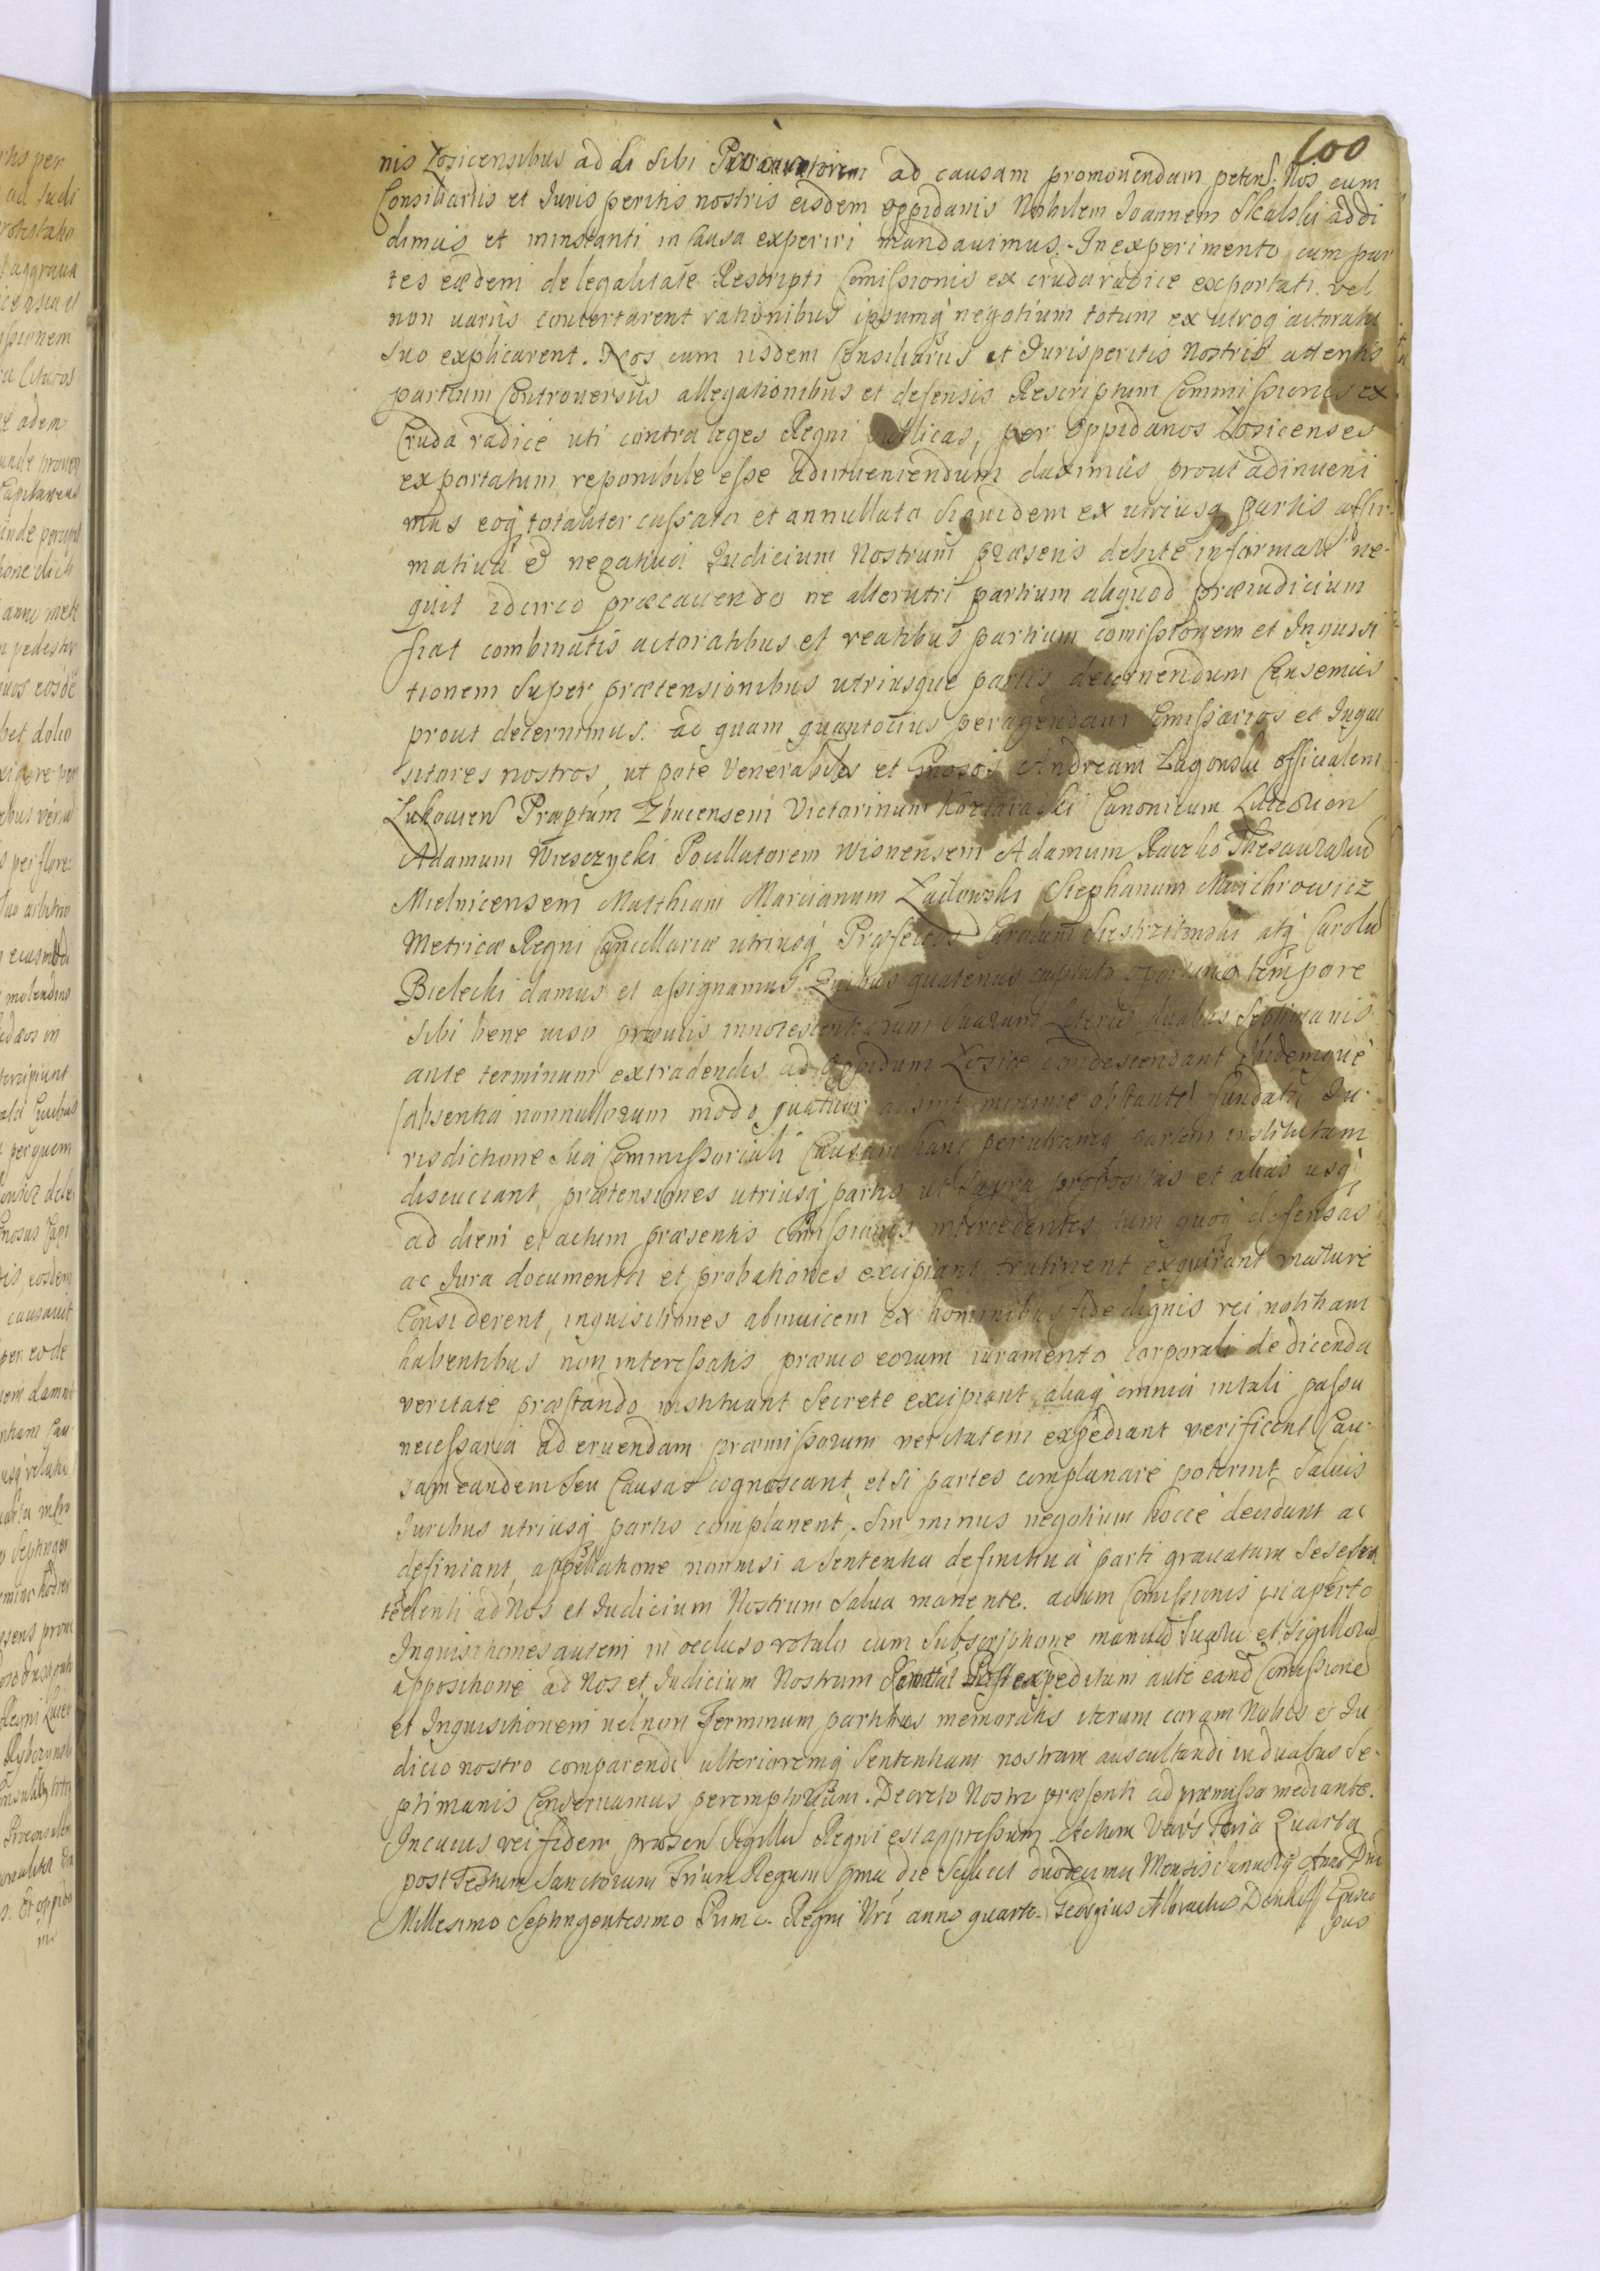 100
nis Łosicensibus addi sibi Procuratorem ad causam promouendam peten. Nos cum
Consiliariis et Juris peritis nostris eisdem oppidanis Nobilem Joannem Skalski addi
dimus et in instanti in causa experiri mandauimus. In experimento cum par
tes eædem de legalitate Rescripti Comissionis ex cruda radice exportati vel
non uariis concertarent rationibus ipsumq negotium totum ex utroq actoratu
suo explicarent. Nos cum iisdem Consiliariis et Jurisperitis Nostris attentis
partium Controuersiis allegationibus et defensis Rescriptum Commissionis ex
Cruda radice uti contra leges Regni publicas, per Oppidanos Łosicenses
exportatum reponibile esse adinueniendum duximus prout adinueni
mus eoq totaliter cassato et annullato siquidem ex utriusq partis affir-
matiua et negatiua Judicium Nostrum præsens debite informari ne-
quit idcirco præcauendo ne alterutri partium aliquod præiudicium
fiat combinatis actoratibus et reatibus partium comissionem et Inquisi
tionem super prætensionibus utriusque partis decernendum Censemus
prout decernimus. ac quam quantocius peragendam Comissarios et Inqui
sitores nostros, ut pote Venerabiles et Gnosos Andream Zugonski officialem
Łukouien Præptum Zbucensem Victorinum Canonicum
Adamum Wieszczycki Pocillatorem Wisnensem Adamum Raczko Thesaurariu
Mielnicensem Matthiam Marcianum Stephanum
Metricæ Regni Cancellariæ utriusq Præfectos Carolum atq Carolu
Bielecki damus et assignamus. Quibus quatenus captato oportuno tempore
sibi bene uiso præuiis innotescentiarum suarum Literis duabus septimanis
ante terminum extradendis ad Oppidum Łosice condescendant ibidemque
(absentia nonnullorum modo quatuor adsint minime obstante) fundata Ju-
risdictione sua Commissoriali Causam hanc per utramq partem institutam
discutiant, prætensiones utriusq partis ut supra propositas et alias usq
ad diem et actum præsentis Comissionis intercedentes tum quoq defensas
ac Jura documenta et probationes excipiant trutinent exquirant mature
Considerent, inquisitiones abinuicem ex hominibus fide dignis rei notitiam
habentibus non interessatis præuio eorum iuramento corporali de dicenda
veritate præstando instituant secrete excipiant aliaq omnia in tali passu
necessaria ad eruendam præmissorum veritatem expediant verificent Cau-
sam eandem seu Causas cognoscant et si partes complanare poterint saluis
Juribus utriusq partis complanent, Sin minus negotium hocce decidant ac
definiant, appellatione nonnisi a sententia definitiua parti grauatam sese
ad Nos et Judicium Nostrum salua manente. actum Comissionis in aperto
Inquisitiones autem in occluso rotulo cum subscriptione manuu suaru et sigilloru
appositione ad Nos et Judicium Nostrum Post expeditam aute eand Comissione
et Inquisitionem uel non Terminum partibus memoratis iterum coram Nobis et Ju
dicio nostro comparendi ulterioremq sententiam nostram auscultandi in duabus se-
ptimanis Conseruamus peremptorium. Decreto Nostro præsenti ad præmissa mediante.
In cuius rei fidem præsen Sigillu Regni est appressum Actum Vars Feria Quarta
post Festum Sanctorum Trium Regum pma die scilicet duodecima Mensis Januarij Anno Dni
Millesimo Septingentesimo Primo Regni Nri anno quarto. Georgius Albrachus Denhoff Episco
pus